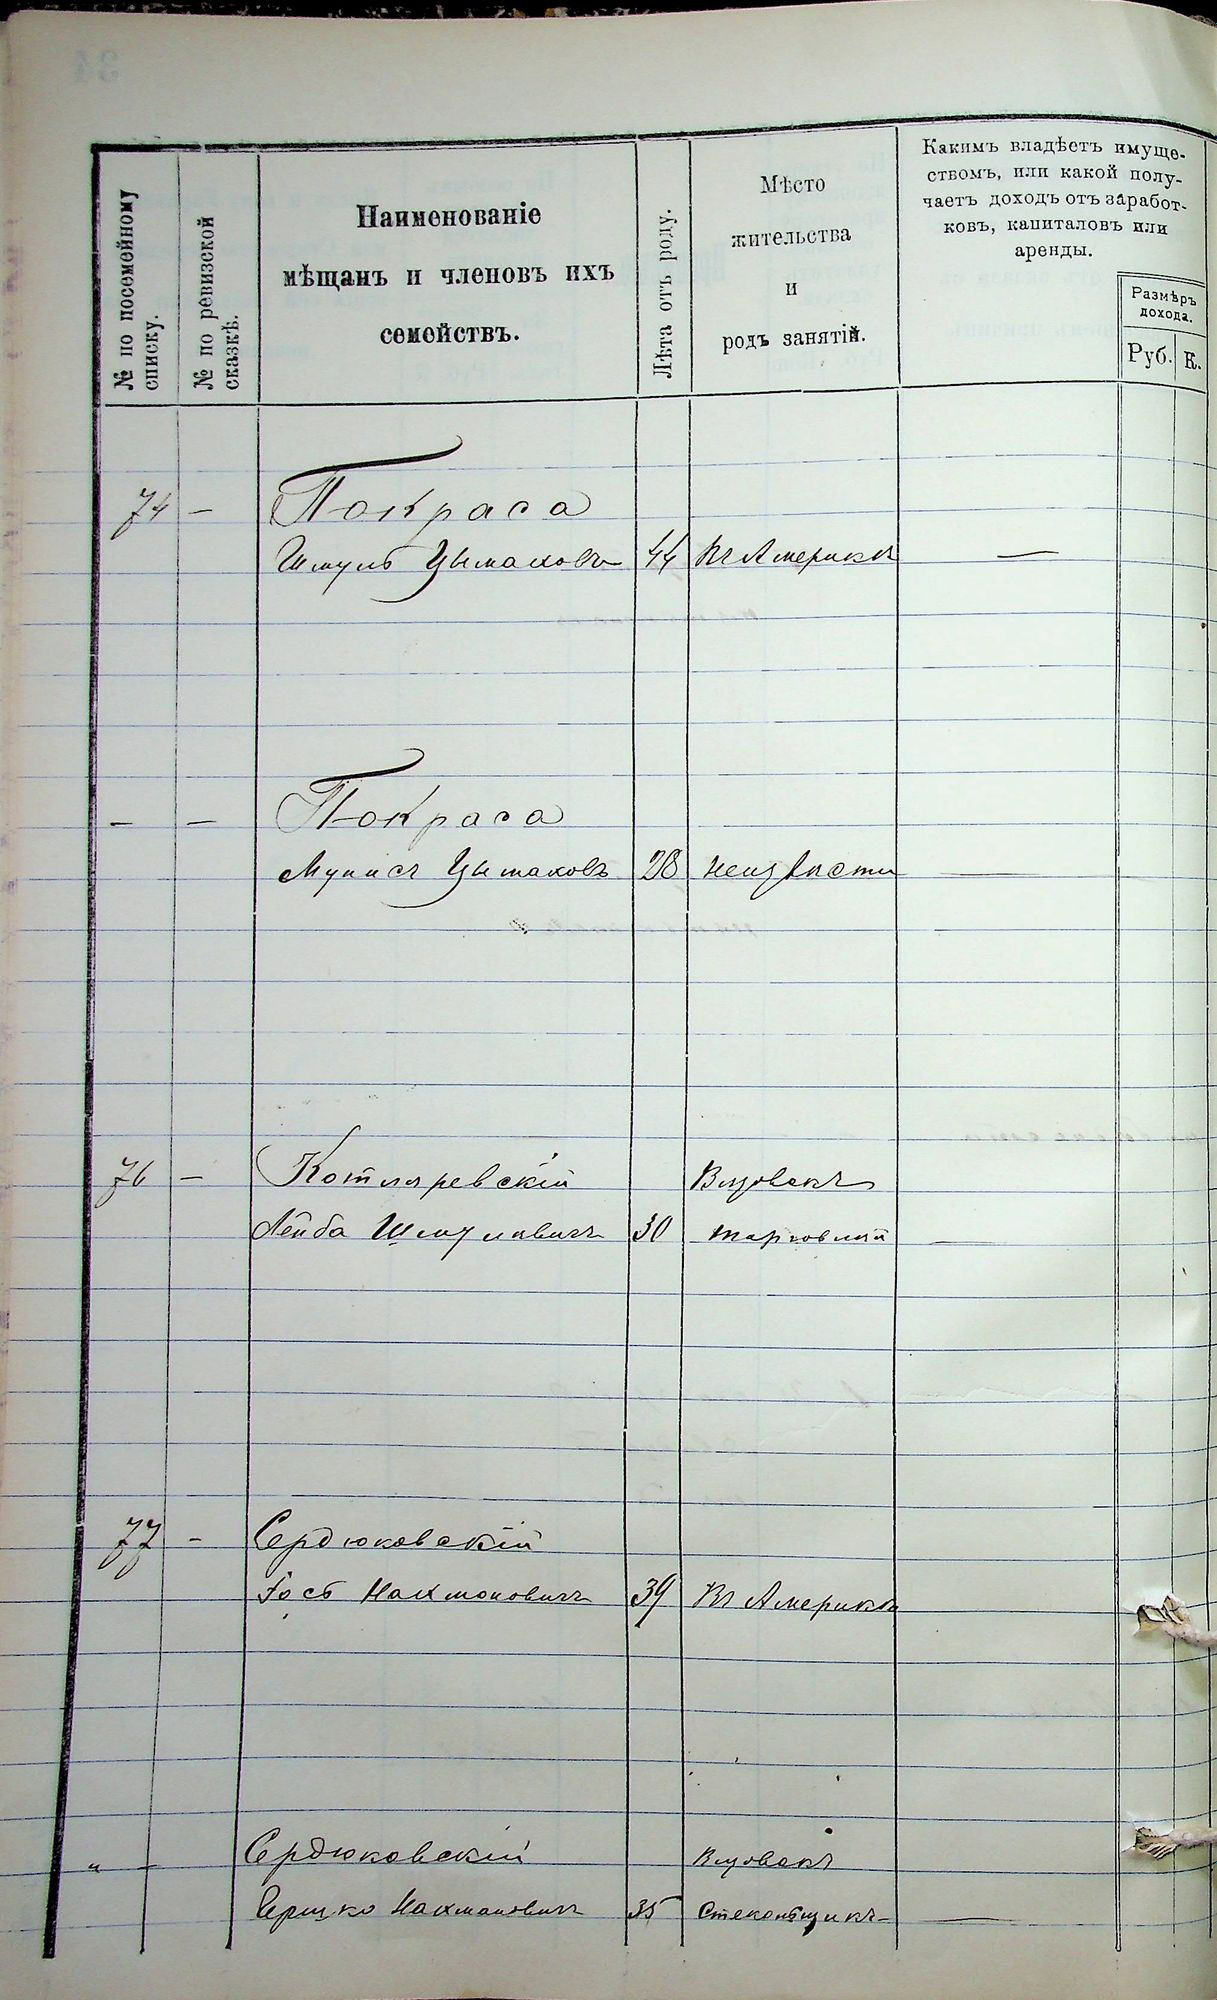 34
№ по посемейному списку.
№ по ревизской сказкѣ.
Наименованіе
мѣщанъ и членовъ ихъ
семействъ.
Лѣта отъ роду.
Мѣсто
жительства
и
родъ занятій.
Какимъ владѣетъ имуще-
ствомъ, или какой полу-
чаетъ доходъ отъ заработ-
ковъ, капиталовъ или
аренды.
Размѣръ
дохода.
Руб. К.
74 — Покраса
Шмуль 44 Въ Америкѣ —
— — Покраса
28 неизвѣстн —
76 — Котляревскій
Лейба Шмулевичъ 30 торговлей —
77 - Сердюковскій
Іось Нахмановичъ 39 Въ Америкѣ
" — Сердюковскій
Гершко Нахмановичъ 35 Стекольщикъ —